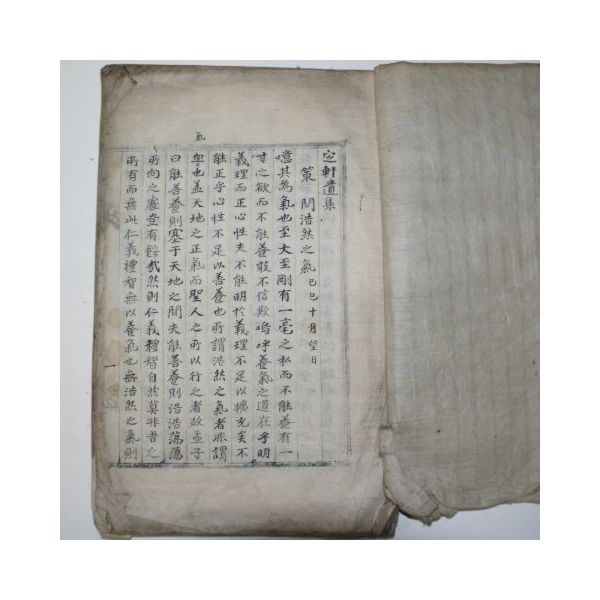 定軒遺集
策 問浩然之氣 己巳十月望日
噫其為氣也至大至剛有一毫之私而不能養有一
寸之欲而不能養敢不信歟嗚呼養氣之道在乎明
義理而正心性夫不能明於義理不足以擴充矣不
能正乎心性不足以善養也所謂浩然之氣者非謂
血
氣
也盖天地之正氣而聖人之所以行之者故孟子
曰能善養則塞于天地之間夫能善養則浩浩蕩蕩
所向之處豈有餒哉然則仁義禮智自然莫非吾之
所有而無此仁義禮智無以養氣也無浩然之氣則
一